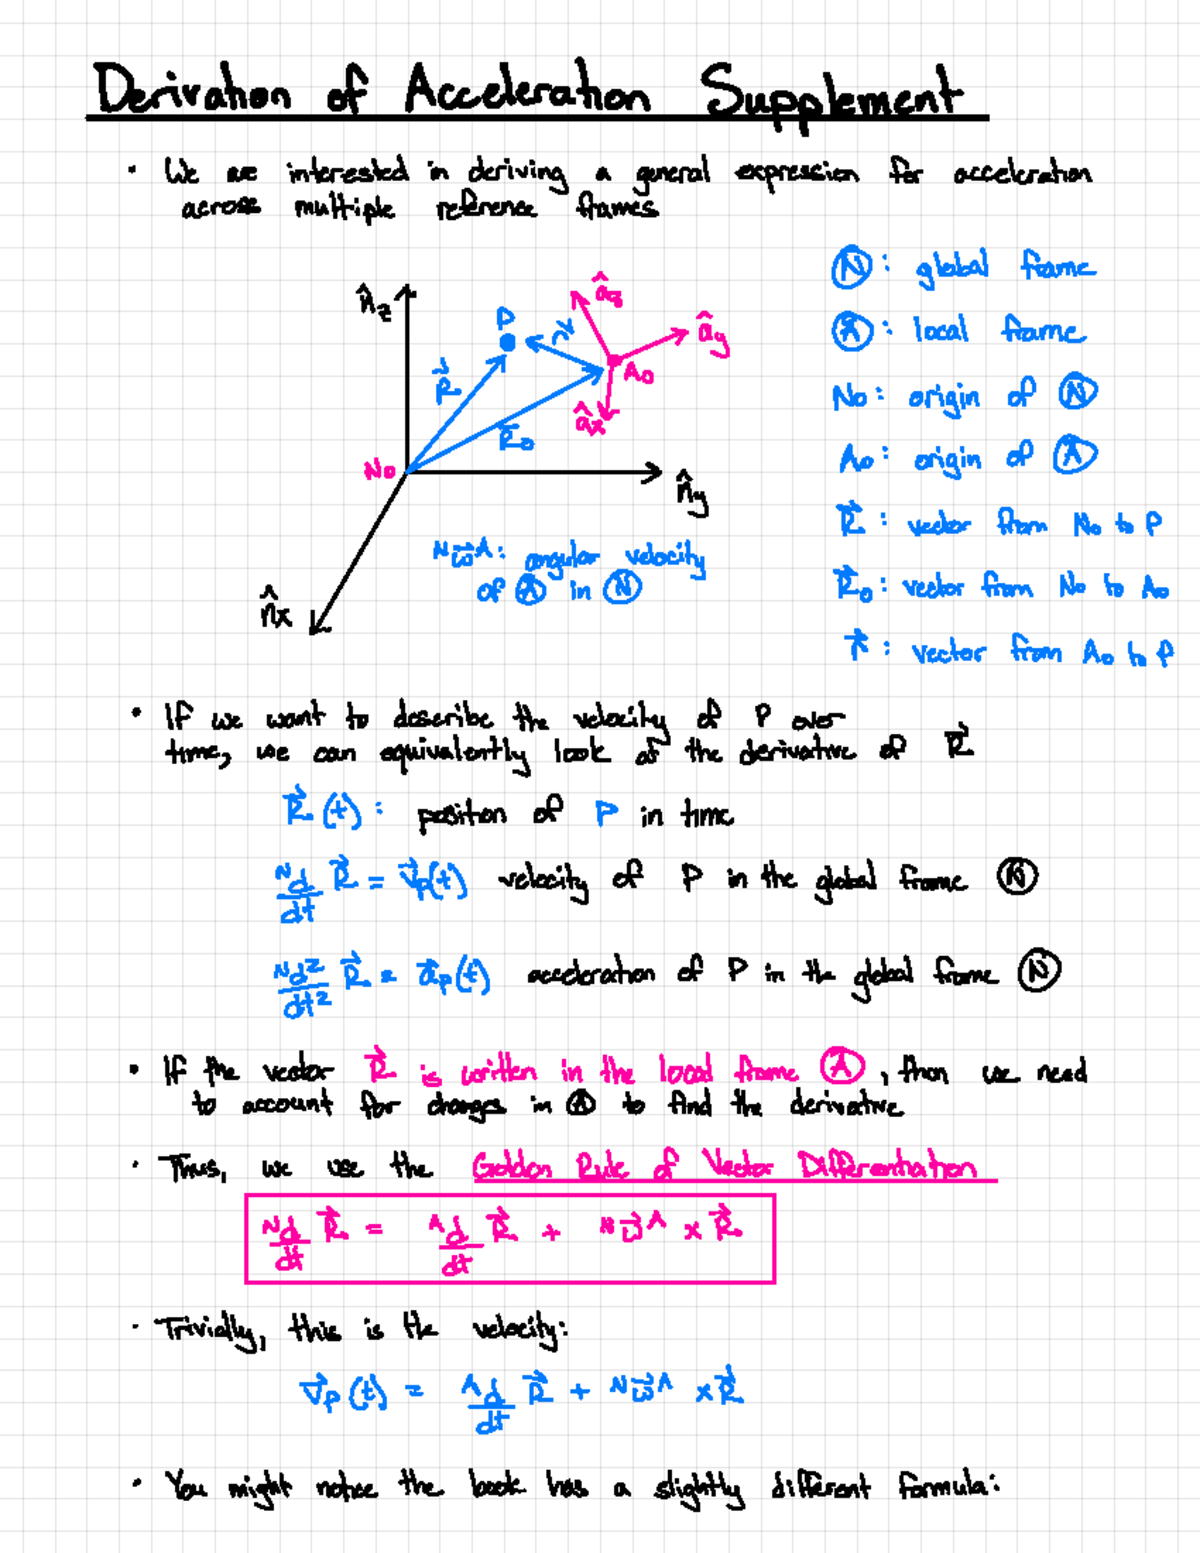 Derivation of Acceleration Supplement
• We are interested in deriving a general expression for acceleration
across multiple reference frames
n̂z
P
r⃗
âz
ây
A₀
âx
R⃗
R⃗₀
N₀
n̂y
n̂x
ᴺω⃗ᴬ: angular velocity
of Ⓐ in Ⓝ
Ⓝ: global frame
Ⓐ: local frame
N₀: origin of Ⓝ
A₀: origin of Ⓐ
R⃗: vector from N₀ to P
R⃗₀: vector from N₀ to A₀
r⃗: vector from A₀ to P
• If we want to describe the velocity of P over
time, we can equivalently look at the derivative of R⃗
R⃗(t): position of P in time
ᴺd/dt R⃗ = v⃗p(t) velocity of P in the global frame Ⓝ
ᴺd²/dt² R⃗ = a⃗p(t) acceleration of P in the global frame Ⓝ
• If the vector R⃗ is written in the local frame Ⓐ, then we need
to account for changes in Ⓐ to find the derivative
• Thus, we use the Golden Rule of Vector Differentiation
ᴺd/dt R⃗ = ᴬd/dt R⃗ + ᴺω⃗ᴬ × R⃗
• Trivially, this is the velocity:
v⃗p(t) = ᴬd/dt R⃗ + ᴺω⃗ᴬ × R⃗
• You might notice the book has a slightly different formula: